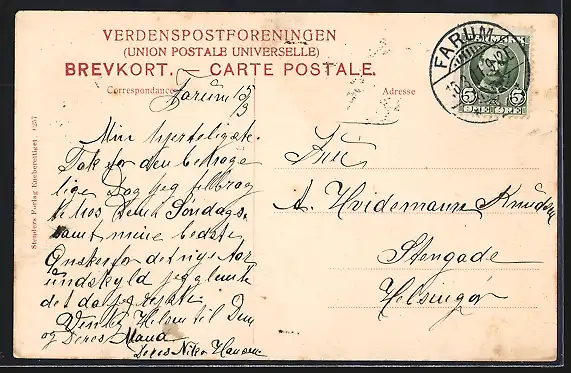 VERDENSPOSTFORENINGEN
(UNION POSTALE UNIVERSELLE)
BREVKORT. — CARTE POSTALE.
Correspondance
Adresse
FARUM
5 5
Stenders Forlag Eneberettiget 4257
Farum 15/3
Min hjerteligste
Tak for den
lige Dag jeg tilbrag
te hos Dem i Søndags
samt mine bedste
Ønsker for det nye Aar
undskyld jeg glemte
det da jeg rejste
Venlig Hilsen til Dem
og Deres Mand
Deres Hansen
Fru
A. Hvidemann Knudsen
Stengade
Helsingør